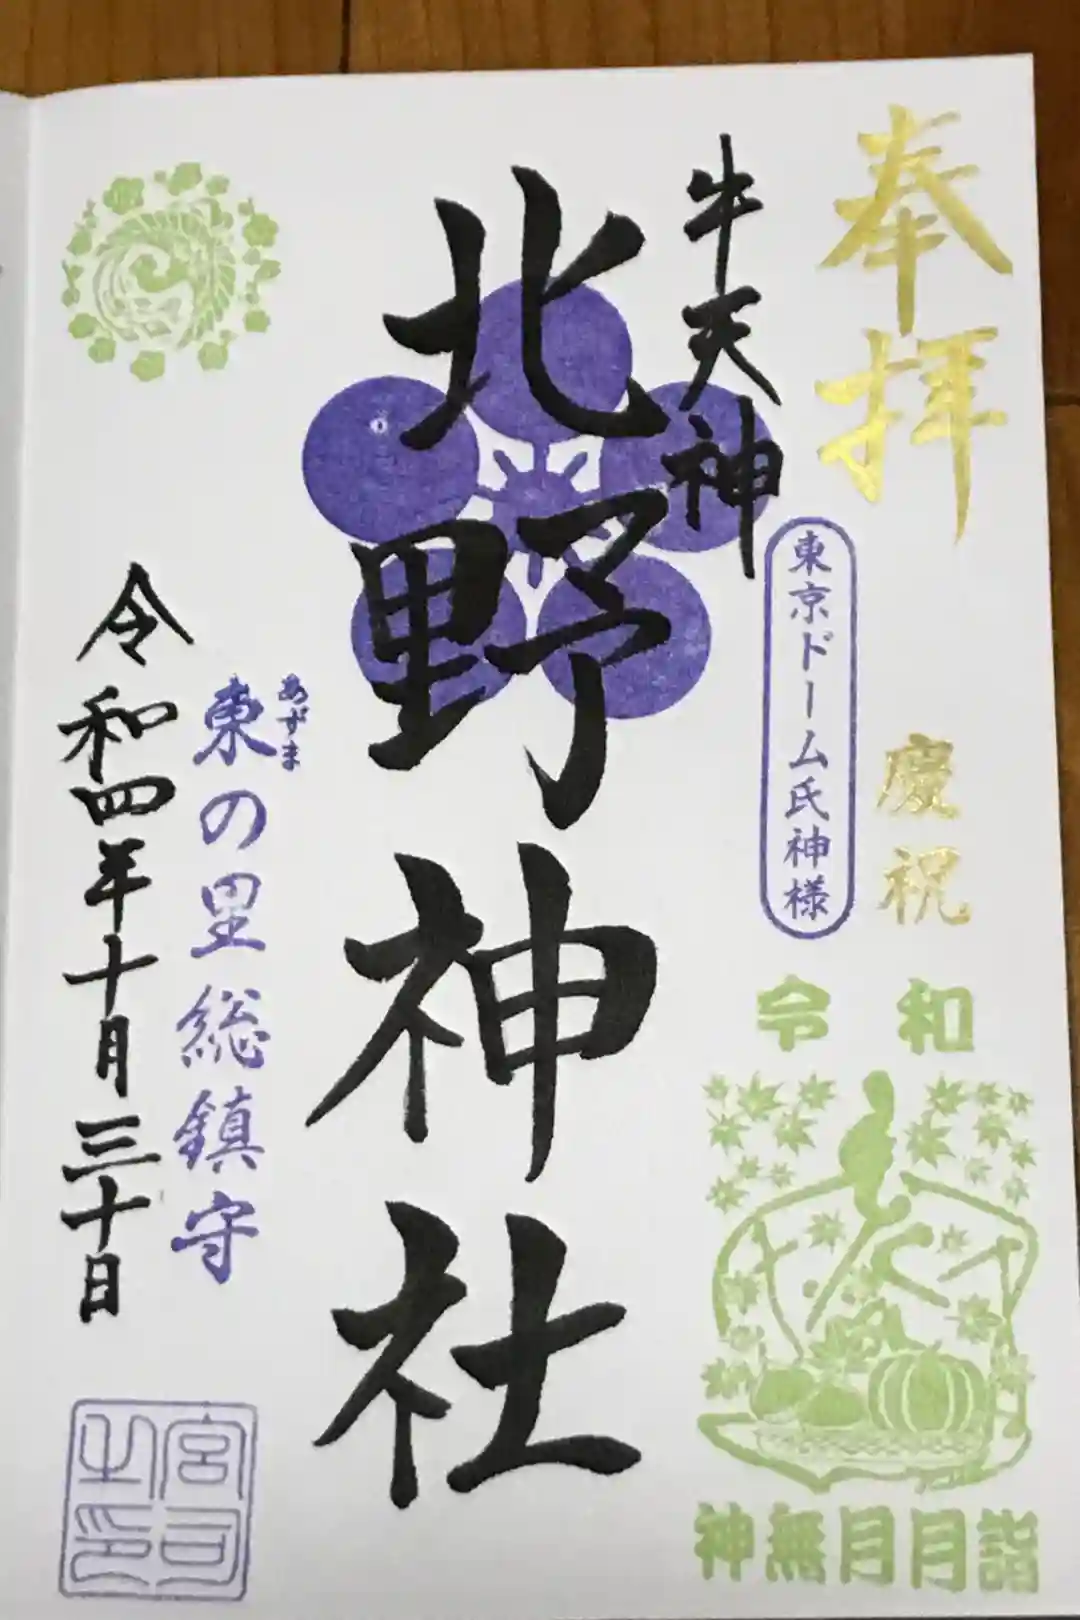 奉拝
慶祝
令和
神無月月詣
東京ドーム氏神様
牛天神
北野神社
あずま
東の里総鎮守
令和四年十月三十日
宮司
之印